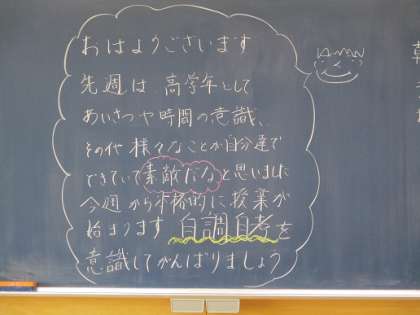 おはようございます
先週は、高学年として
あいさつや時間の意識、
その他 様々なことが自分達で
できていて素敵だなと思いました
今週から本格的に授業が
始まります 自調自考を
意識してがんばりましょう